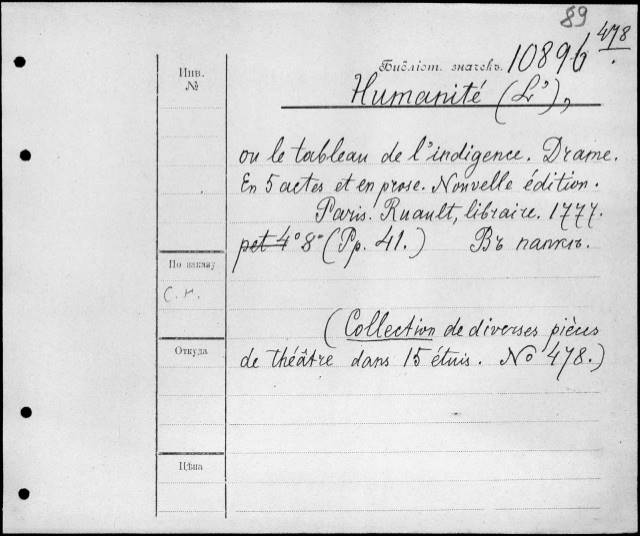 89
478
Инв.
№
Библіот. значекъ. 10896
Humanité (L'),
ou le tableau de l'indigence. Drame.
En 5 actes et en prose. Nouvelle édition.
Paris. Ruault, libraire. 1777.
pet 4° 8° (Pp. 41.) Въ папкѣ.
По заказу
С. н.
(Collection de diverses pièces
Откуда
de théâtre dans 15 étuis. No 478.)
Цѣна